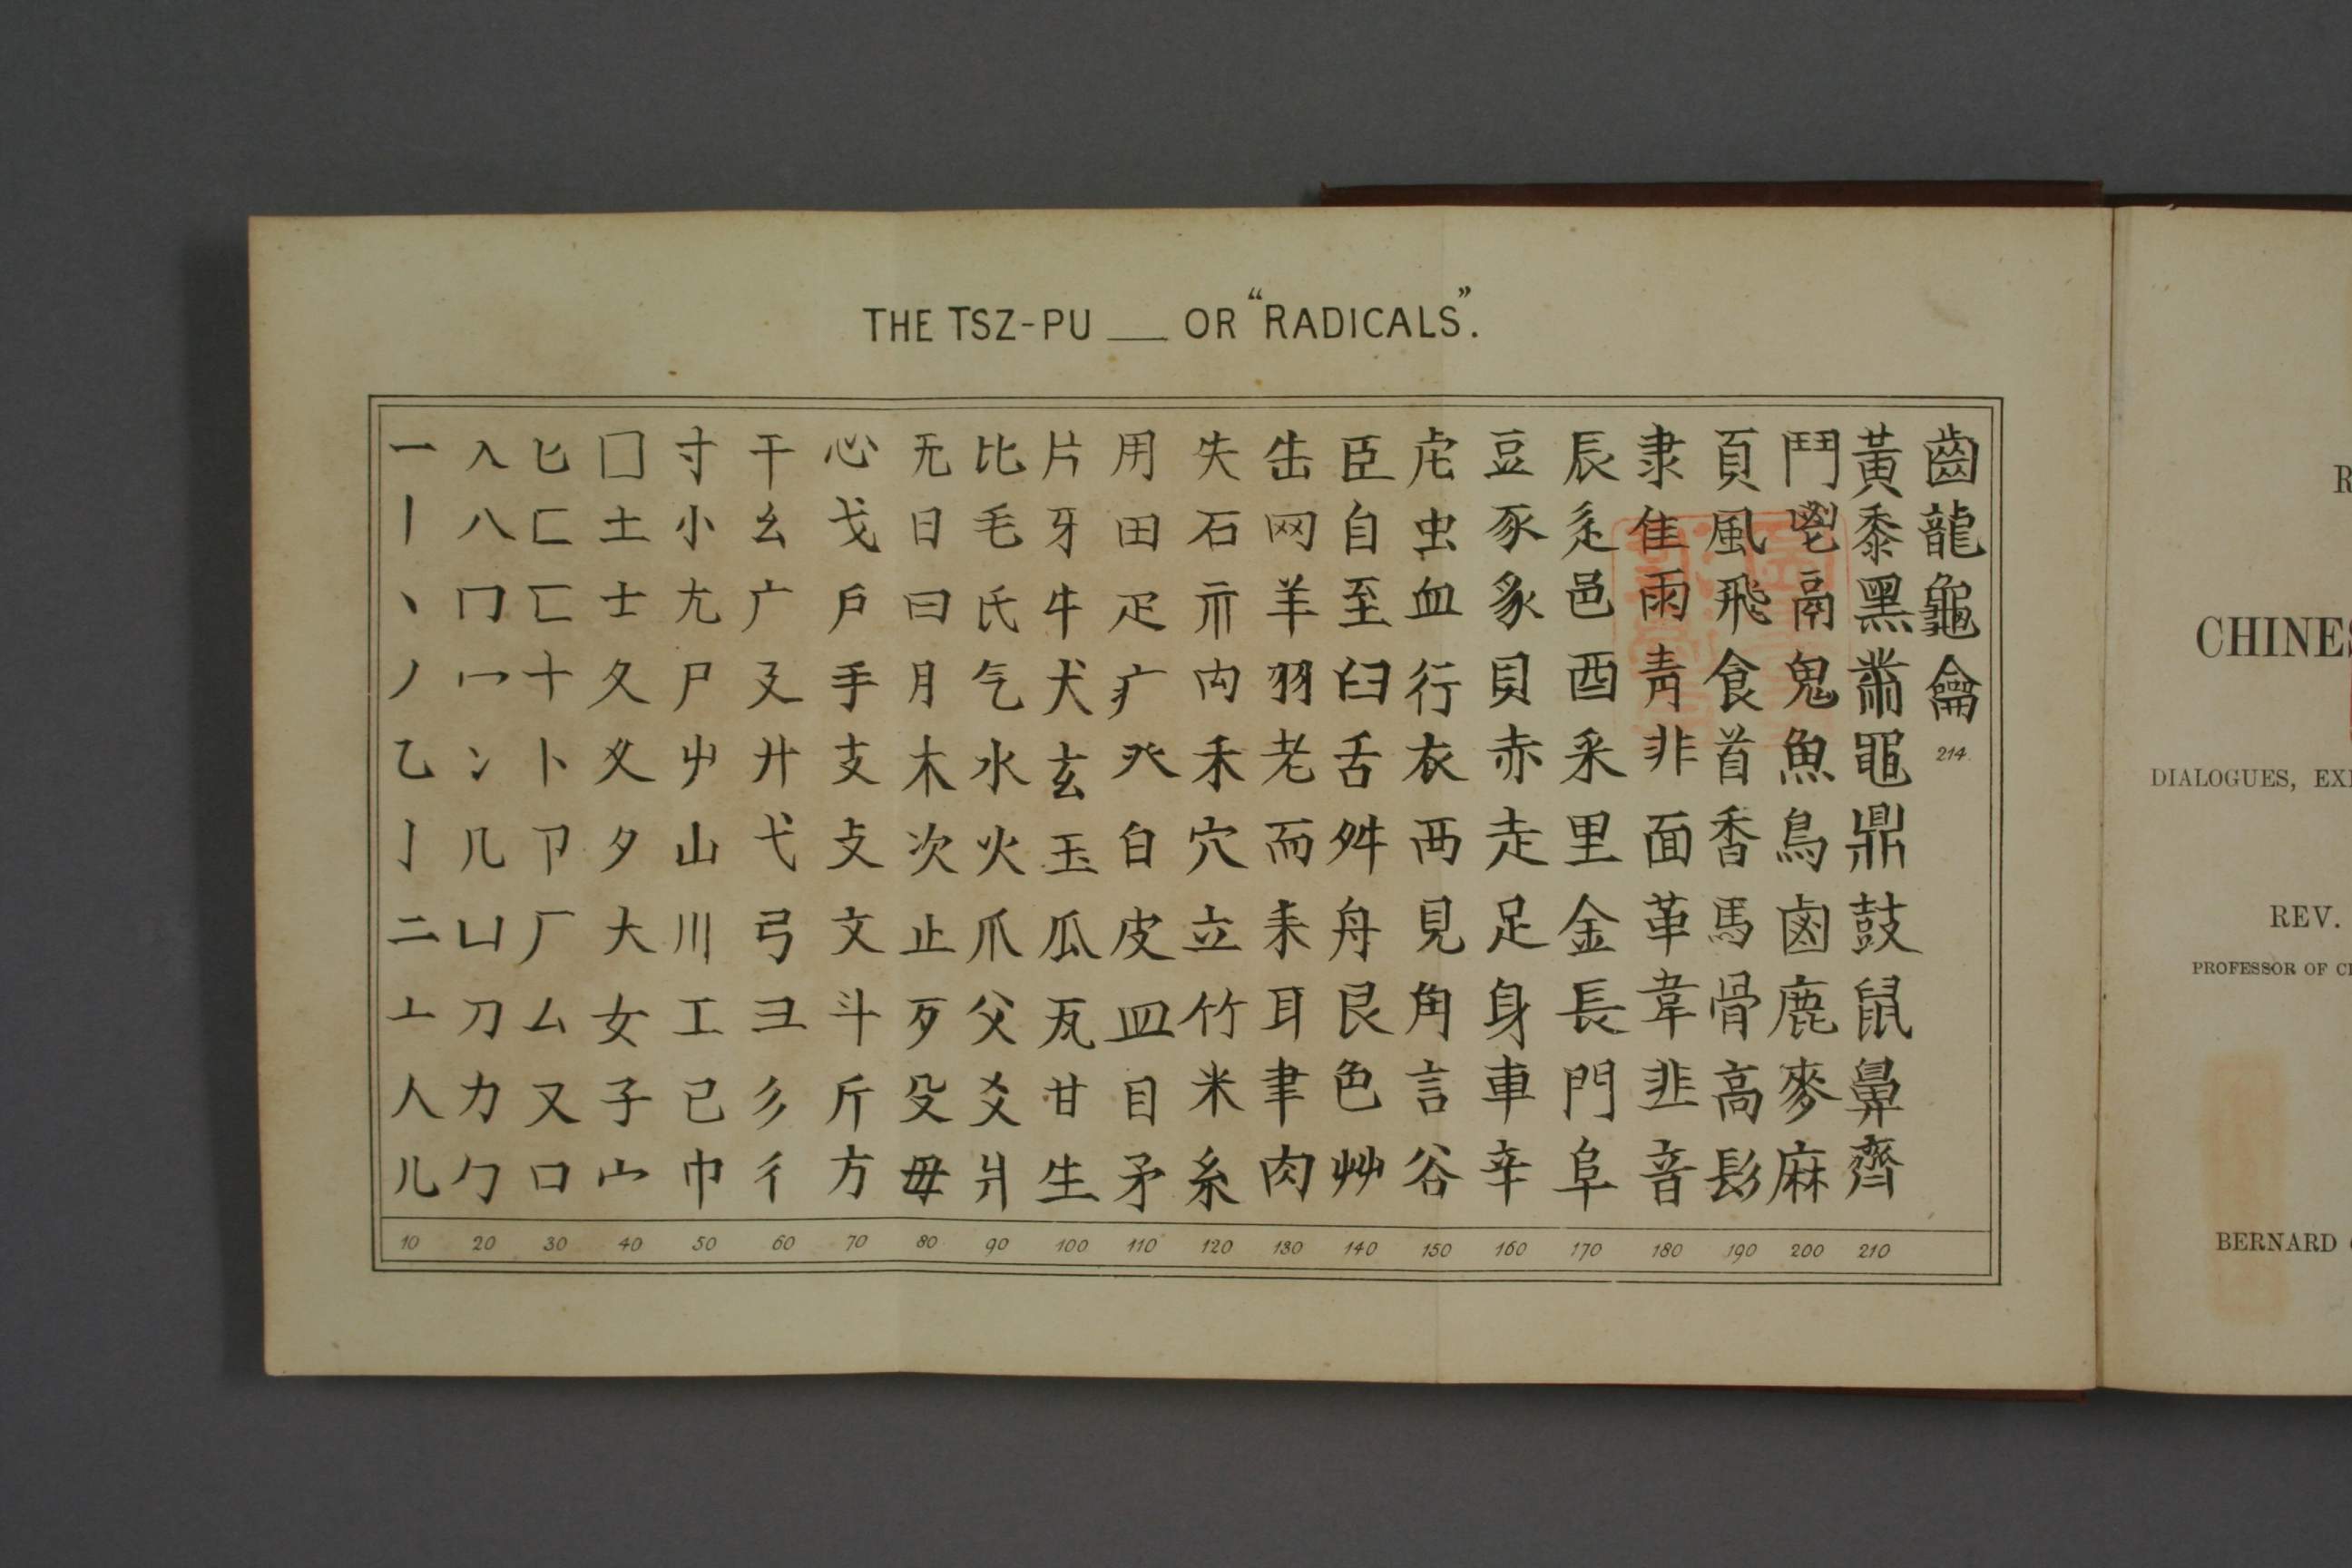 THE TSZ-PU __ OR "RADICALS".
一丨丶丿乙亅二亠人儿
入八冂冖冫几凵刀力勹
匕匚匸十卜卩厂厶又口
囗土士夂夊夕大女子宀
寸小尢尸屮山川工己巾
干幺广廴廾弋弓彐彡彳
心戈戶手支攴文斗斤方
无日曰月木次止歹殳毋
比毛氏气水火爪父爻爿
片牙牛犬玄玉瓜瓦甘生
用田疋疒癶白皮皿目矛
失石示禸禾穴立竹米糸
缶网羊羽老而耒耳聿肉
臣自至臼舌舛舟艮色艸
虍虫血行衣襾見角言谷
豆豕豸貝赤走足身車辛
辰辵邑酉釆里金長門阜
隶隹雨靑非面革韋韭音
頁風飛食首香馬骨高髟
鬥鬯鬲鬼魚鳥鹵鹿麥麻
黃黍黑黹黽鼎鼓鼠鼻齊
齒龍龜龠
214.
10 20 30 40 50 60 70 80 90 100 110 120 130 140 150 160 170 180 190 200 210
R
CHINES
DIALOGUES, EX
REV.
PROFESSOR OF C
BERNARD